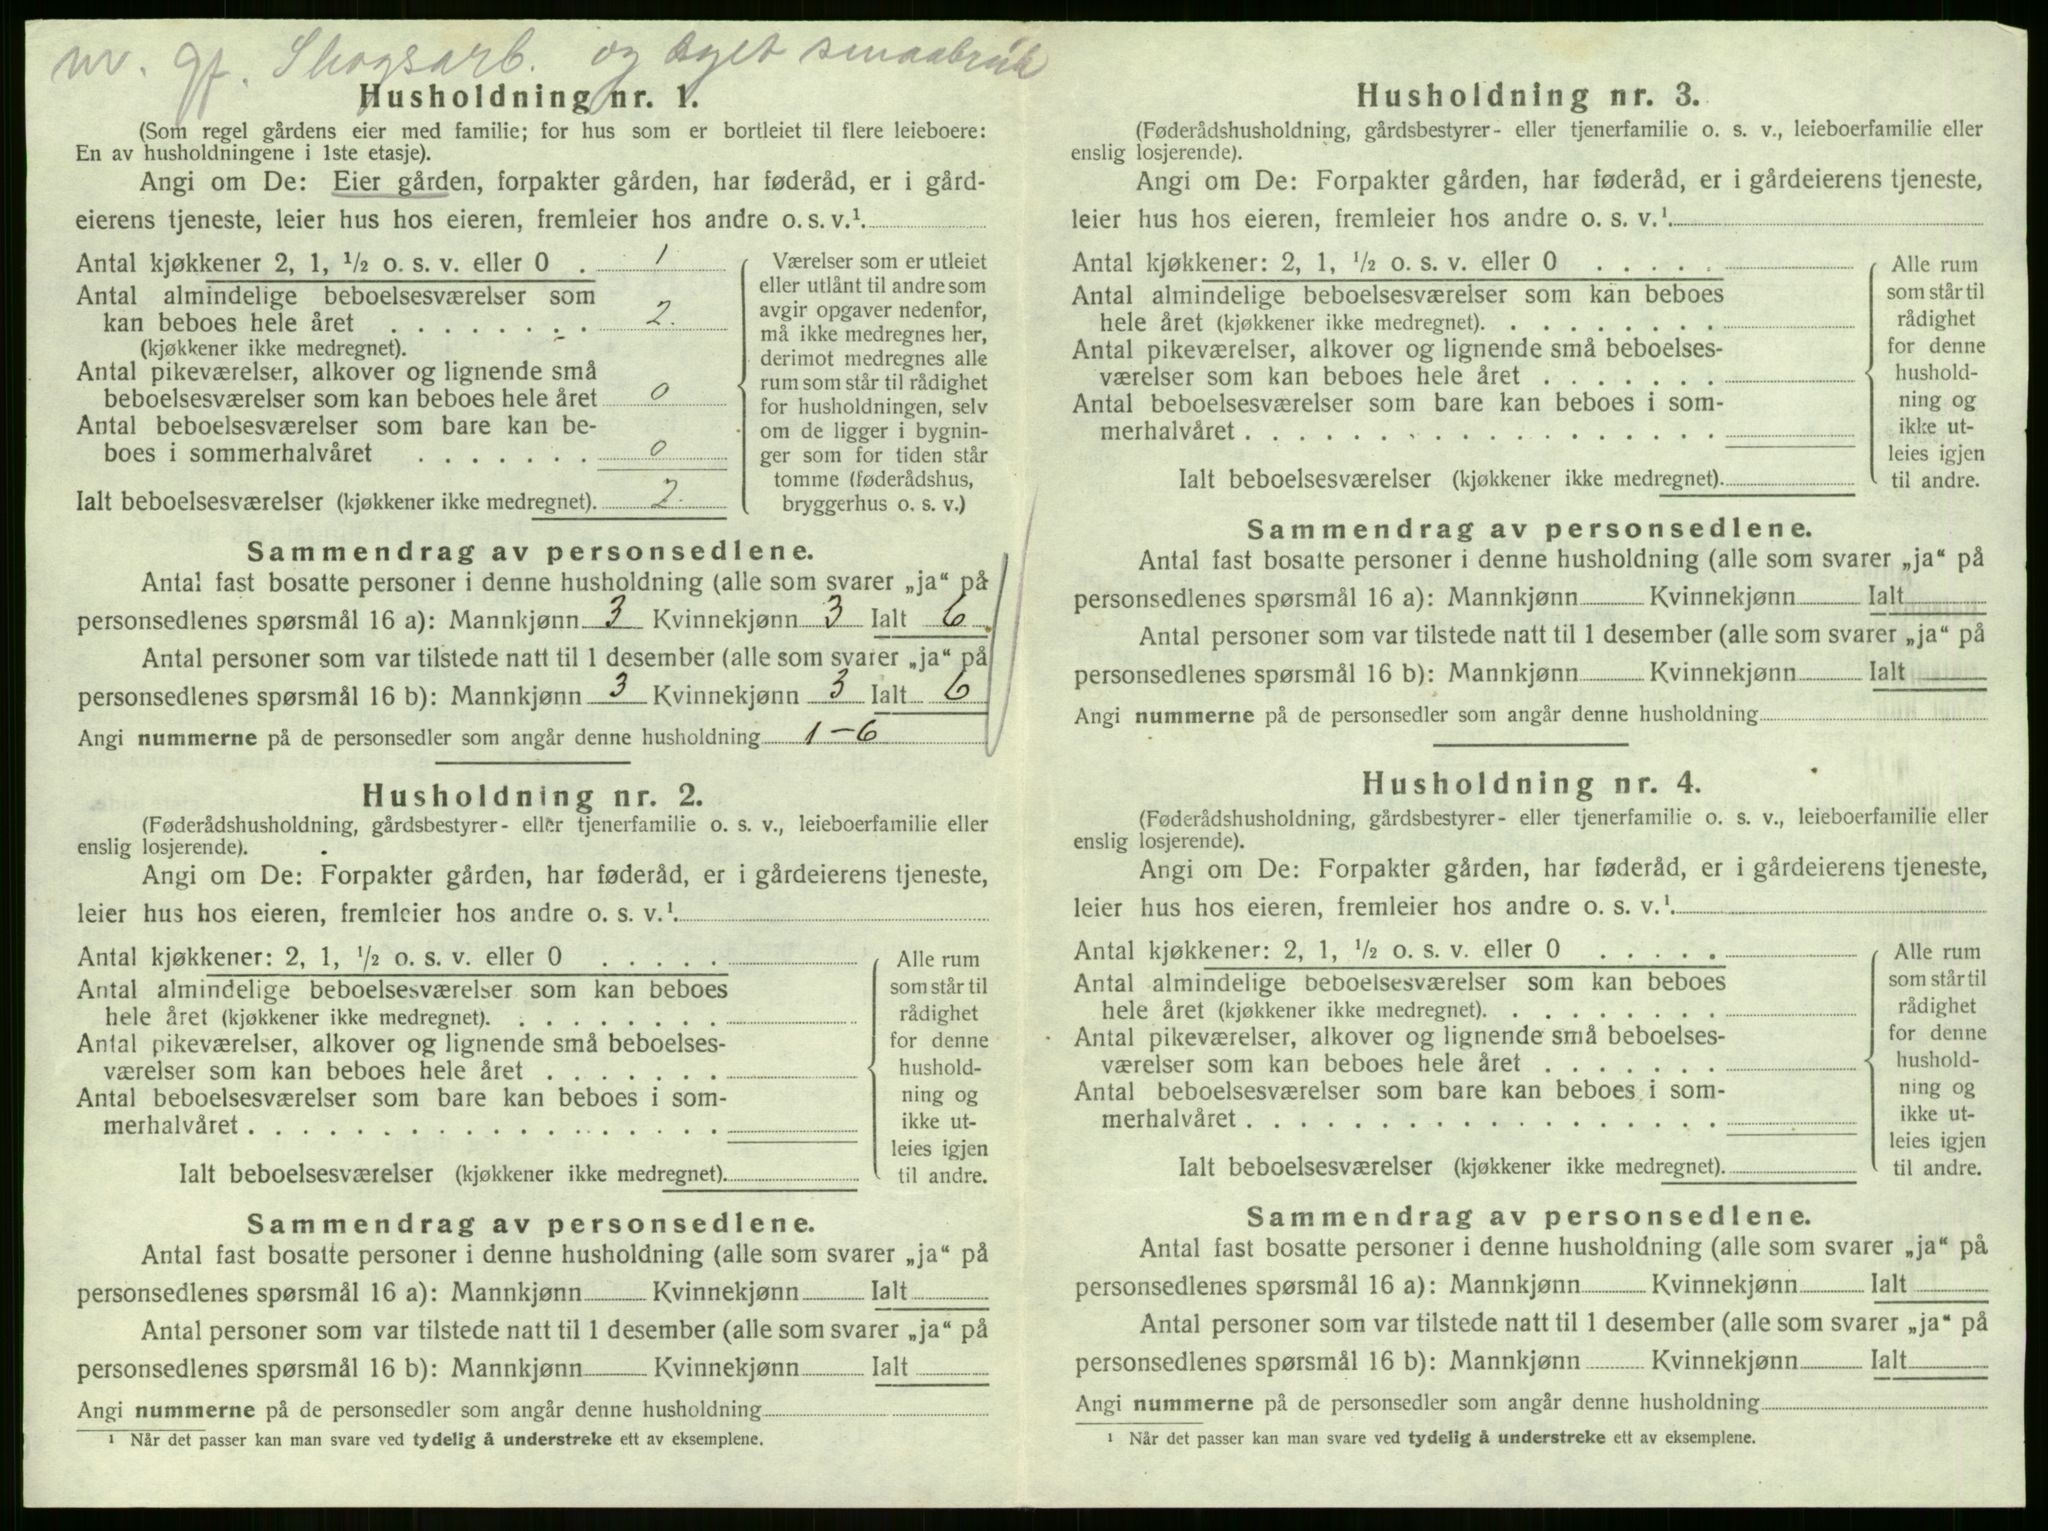 nr. gf. Skogsarb. og eget smaabruk
Husholdning nr. 1.
(Som regel gårdens eier med familie; for hus som er bortleiet til flere leieboere:
En av husholdningene i 1ste etasje).
Angi om De: Eier gården, forpakter gården, har føderåd, er i gård-
eierens tjeneste, leier hus hos eieren, fremleier hos andre o. s. v.¹
Antal kjøkkener 2, 1, ½ o. s. v. eller 0 . 1
Antal almindelige beboelsesværelser som
kan beboes hele året . . . . . . . . 2.
(kjøkkener ikke medregnet).
Antal pikeværelser, alkover og lignende små
beboelsesværelser som kan beboes hele året 0
Antal beboelsesværelser som bare kan be-
boes i sommerhalvåret . . . . . . . 0
Ialt beboelsesværelser (kjøkkener ikke medregnet). 2.
Værelser som er utleiet
eller utlånt til andre som
avgir opgaver nedenfor,
må ikke medregnes her,
derimot medregnes alle
rum som står til rådighet
for husholdningen, selv
om de ligger i bygnin-
ger som for tiden står
tomme (føderådshus,
bryggerhus o. s. v.)
Sammendrag av personsedlene.
Antal fast bosatte personer i denne husholdning (alle som svarer „ja“ på
personsedlenes spørsmål 16 a): Mannkjønn 3 Kvinnekjønn 3 Ialt 6
Antal personer som var tilstede natt til 1 desember (alle som svarer „ja“ på
personsedlenes spørsmål 16 b): Mannkjønn 3 Kvinnekjønn 3 Ialt 6
Angi nummerne på de personsedler som angår denne husholdning 1-6
Husholdning nr. 2.
(Føderådshusholdning, gårdsbestyrer- eller tjenerfamilie o. s. v., leieboerfamilie eller
enslig losjerende).
Angi om De: Forpakter gården, har føderåd, er i gårdeierens tjeneste,
leier hus hos eieren, fremleier hos andre o. s. v.¹
Antal kjøkkener: 2, 1, ½ o. s. v. eller 0 . . . . .
Antal almindelige beboelsesværelser som kan beboes
hele året (kjøkkener ikke medregnet). . . . . . . . .
Antal pikeværelser, alkover og lignende små beboelses-
værelser som kan beboes hele året . . . . . . .
Antal beboelsesværelser som bare kan beboes i som-
merhalvåret . . . . . . . . . . . . . . . . . .
Ialt beboelsesværelser (kjøkkener ikke medregnet).
Alle rum
som står til
rådighet
for denne
hushold-
ning og
ikke ut-
leies igjen
til andre.
Sammendrag av personsedlene.
Antal fast bosatte personer i denne husholdning (alle som svarer „ja“ på
personsedlenes spørsmål 16 a): Mannkjønn Kvinnekjønn Ialt
Antal personer som var tilstede natt til 1 desember (alle som svarer „ja“ på
personsedlenes spørsmål 16 b): Mannkjønn Kvinnekjønn Ialt
Angi nummerne på de personsedler som angår denne husholdning
¹ Når det passer kan man svare ved tydelig å understreke ett av eksemplene.
Husholdning nr. 3.
(Føderådshusholdning, gårdsbestyrer- eller tjenerfamilie o. s. v., leieboerfamilie eller
enslig losjerende).
Angi om De: Forpakter gården, har føderåd, er i gårdeierens tjeneste,
leier hus hos eieren, fremleier hos andre o. s. v.¹
Antal kjøkkener: 2, 1, ½ o. s. v. eller 0 . . . . .
Antal almindelige beboelsesværelser som kan beboes
hele året (kjøkkener ikke medregnet). . . . . . . . .
Antal pikeværelser, alkover og lignende små beboelses-
værelser som kan beboes hele året . . . . . . .
Antal beboelsesværelser som bare kan beboes i som-
merhalvåret . . . . . . . . . . . . . . . . . .
Ialt beboelsesværelser (kjøkkener ikke medregnet).
Alle rum
som står til
rådighet
for denne
hushold-
ning og
ikke ut-
leies igjen
til andre.
Sammendrag av personsedlene.
Antal fast bosatte personer i denne husholdning (alle som svarer „ja“ på
personsedlenes spørsmål 16 a): Mannkjønn Kvinnekjønn Ialt
Antal personer som var tilstede natt til 1 desember (alle som svarer „ja“ på
personsedlenes spørsmål 16 b): Mannkjønn Kvinnekjønn Ialt
Angi nummerne på de personsedler som angår denne husholdning
Husholdning nr. 4.
(Føderådshusholdning, gårdsbestyrer- eller tjenerfamilie o. s. v., leieboerfamilie eller
enslig losjerende).
Angi om De: Forpakter gården, har føderåd, er i gårdeierens tjeneste,
leier hus hos eieren, fremleier hos andre o. s. v.¹
Antal kjøkkener: 2, 1, ½ o. s. v. eller 0 . . . . .
Antal almindelige beboelsesværelser som kan beboes
hele året (kjøkkener ikke medregnet). . . . . . . . .
Antal pikeværelser, alkover og lignende små beboelses-
værelser som kan beboes hele året . . . . . . .
Antal beboelsesværelser som bare kan beboes i som-
merhalvåret . . . . . . . . . . . . . . . . . .
Ialt beboelsesværelser (kjøkkener ikke medregnet).
Alle rum
som står til
rådighet
for denne
hushold-
ning og
ikke ut-
leies igjen
til andre.
Sammendrag av personsedlene.
Antal fast bosatte personer i denne husholdning (alle som svarer „ja“ på
personsedlenes spørsmål 16 a): Mannkjønn Kvinnekjønn Ialt
Antal personer som var tilstede natt til 1 desember (alle som svarer „ja“ på
personsedlenes spørsmål 16 b): Mannkjønn Kvinnekjønn Ialt
Angi nummerne på de personsedler som angår denne husholdning
¹ Når det passer kan man svare ved tydelig å understreke ett av eksemplene.